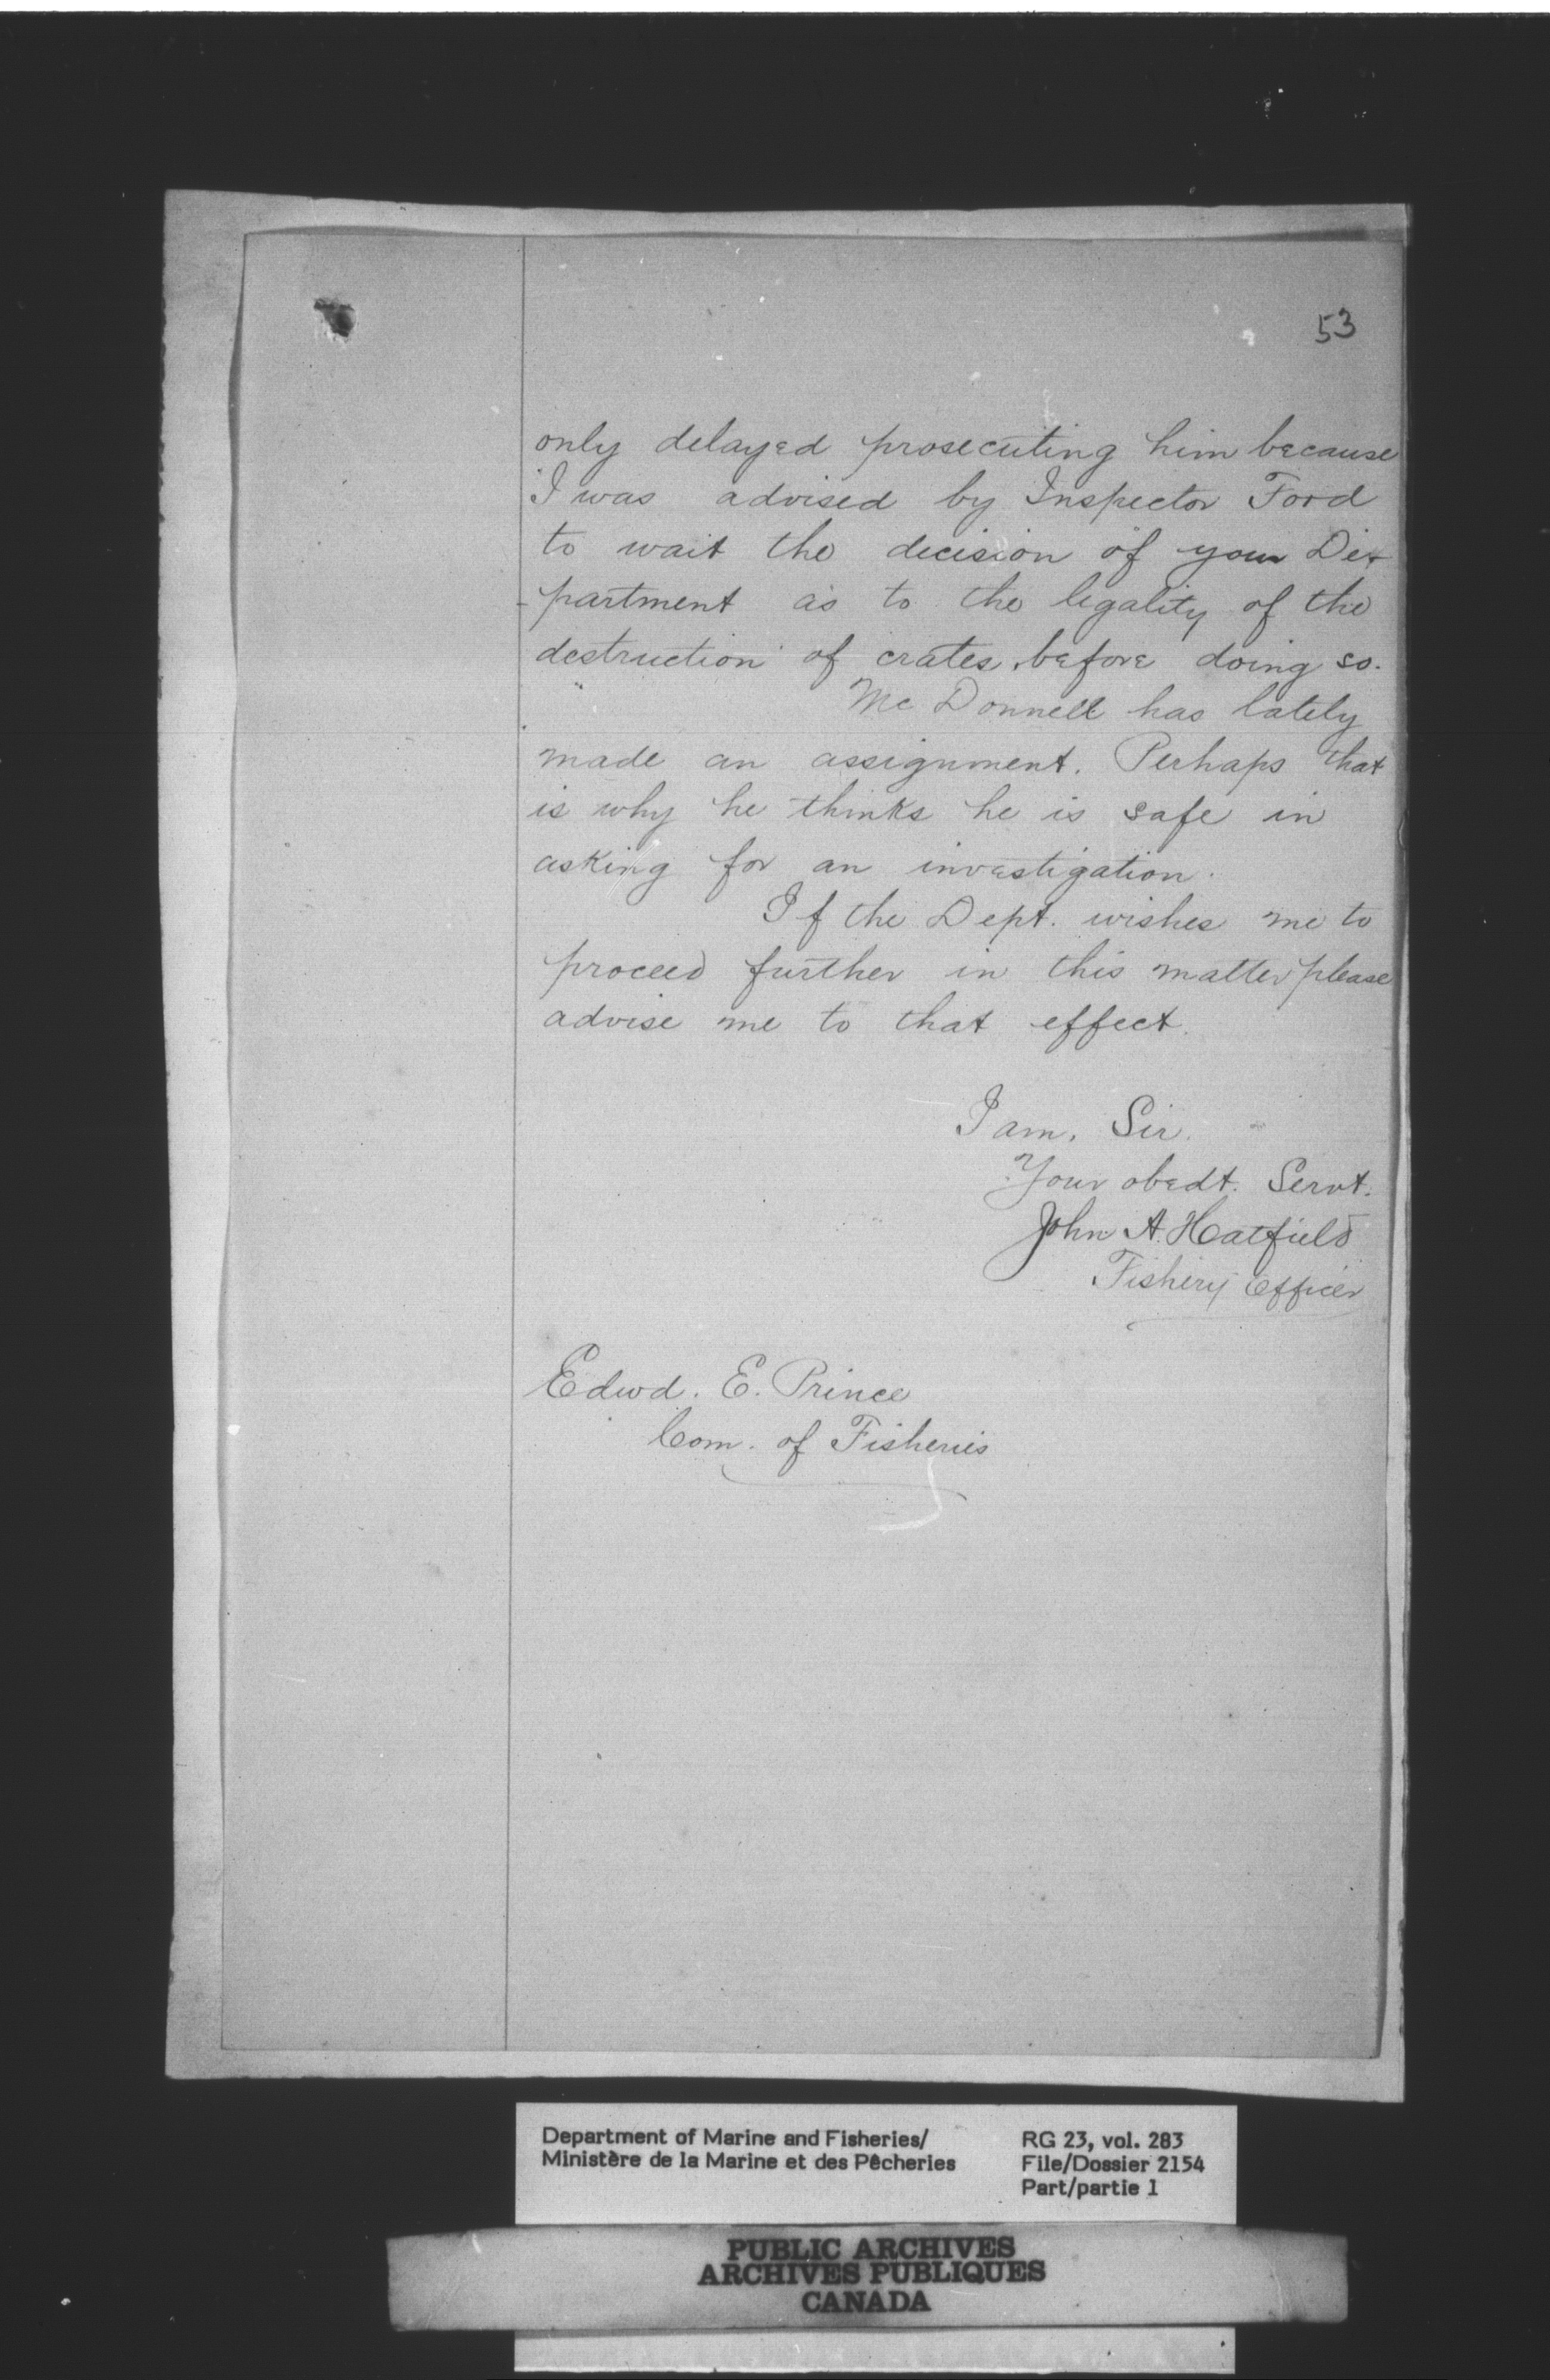 53
only delayed prosecuting him because
I was advised by Inspector Ford
to wait the decision of your De-
-partment as to the legality of the
destruction of crates before doing so.
Mc Donnell has lately
made an assignment. Perhaps that
is why he thinks he is safe in
asking for an investigation.
If the Dept. wishes me to
proceed further in this matter please
advise me to that effect.
I am, Sir.
Your obedt. Servt.
John A. Hatfield
Fishery Officer
Edwd. E. Prince
Com. of Fisheries
Department of Marine and Fisheries/
Ministère de la Marine et des Pêcheries
RG 23, vol. 283
File/Dossier 2154
Part/partie 1
PUBLIC ARCHIVES
ARCHIVES PUBLIQUES
CANADA